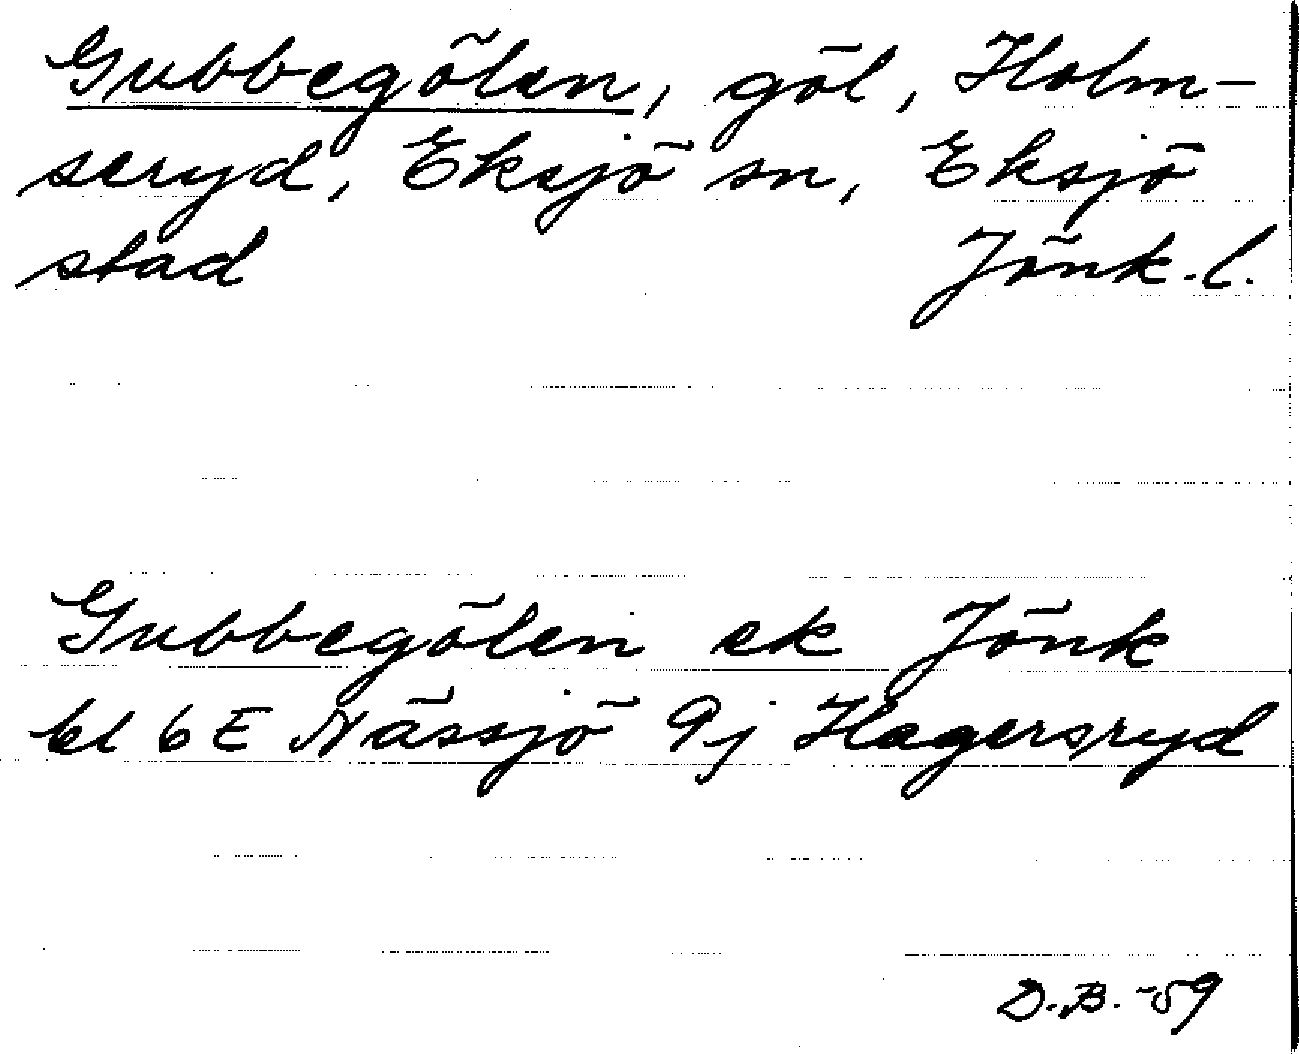 Gubbegölen, göl, Holm-
seryd, Eksjö sn, Eksjö
stad Jönk.l.
Gubbegölen ek Jönk
bl 6 E Nässjö 9j Hagersryd
D.B.-59